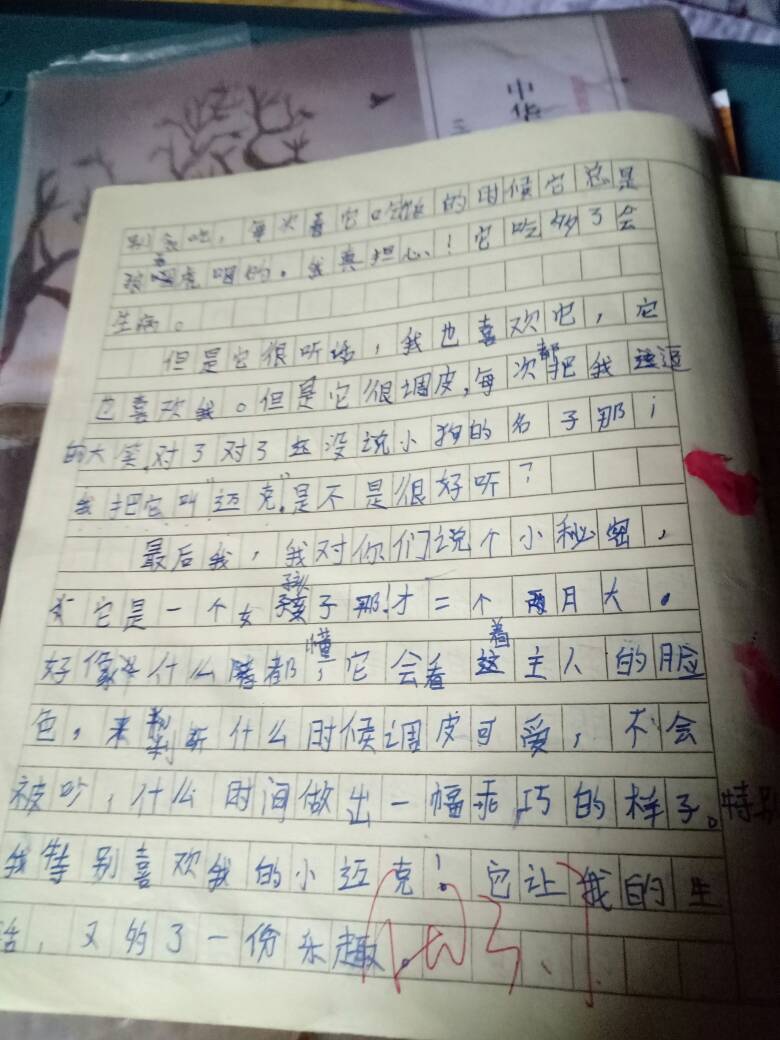 中华
别家吃，每次喜它吃饭的时候它总是
狼吞虎咽的。我真担心！它吃够了会
生病。
但是它很听话，我也喜欢它，它
也喜欢我。但是它很调皮，每次都把我逗
的大笑，对了对了还没说小狗的名子那；
我把它叫“迈克”，是不是很好听？
最后我，我对你们说个小秘密，
它是一个女孩子那！才二个两月大。
好像什么都懂，它会看着主人的脸
色，来判断什么时候调皮可爱，不会
被吵，什么时间做出一幅乖巧的样子。特别
我特别喜欢我的小迈克！它让我的生
活，又的了一份乐趣。